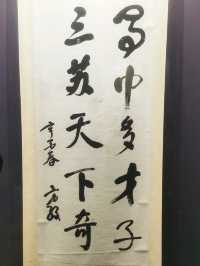 蜀中多才子
三苏天下奇
辛酉春 方毅